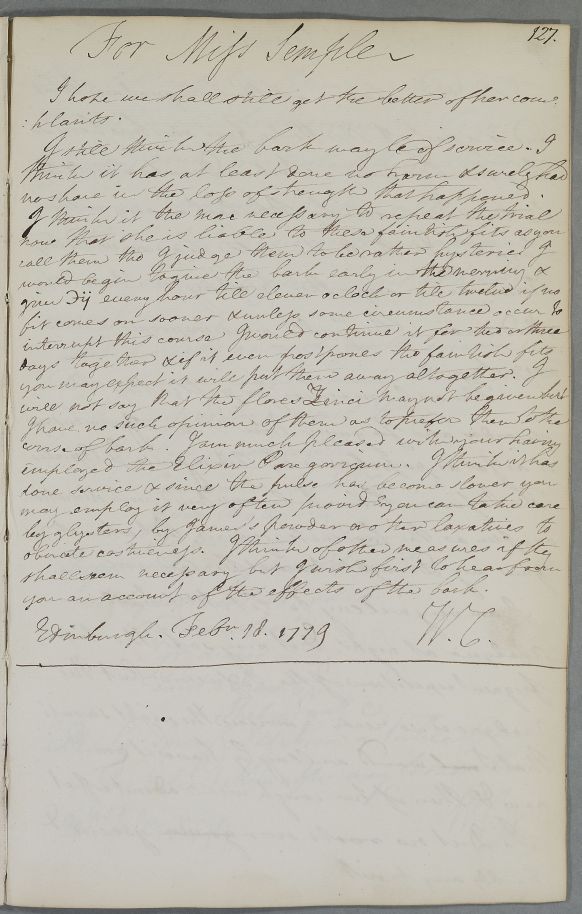 127.
For Miss Semple
I hope we shall still get the better of her com-
:plaints.
I still think the bark may be of service. I
think it has at least done no harm & surely had
no share in the loss of strength that happened.
I think it the more necessary to repeat the trial
now that she is liable to these faintish fits as you
call them tho I judge them to be rather hysteric. I
would begin to give the bark early in the morning &
give ʒij every hour till eleven o clock or till twelve if no
fit comes on sooner & unless some circumstance occur to
interrupt this course I would continue it for two or three
days together & if it even postpones the faintish fits
you may expect it will put them away altogether. I
will not say that the flores Zinci may not be given but
I have no such opinion of them as to prefer them to the
course of bark. I am much pleased with your having
employed the Elixir Paregoricum. I think it has
done service & since the pulse has become slower you
may employ it very often provided you can take care
by glysters, by James's powder or other laxatives to
obviate costiveness. I think of other measures if they
shall seem necessary but I wish first to hear from
you an account of the effects of the bark.
Edinburgh. Febry. 18. 1779 W. C.